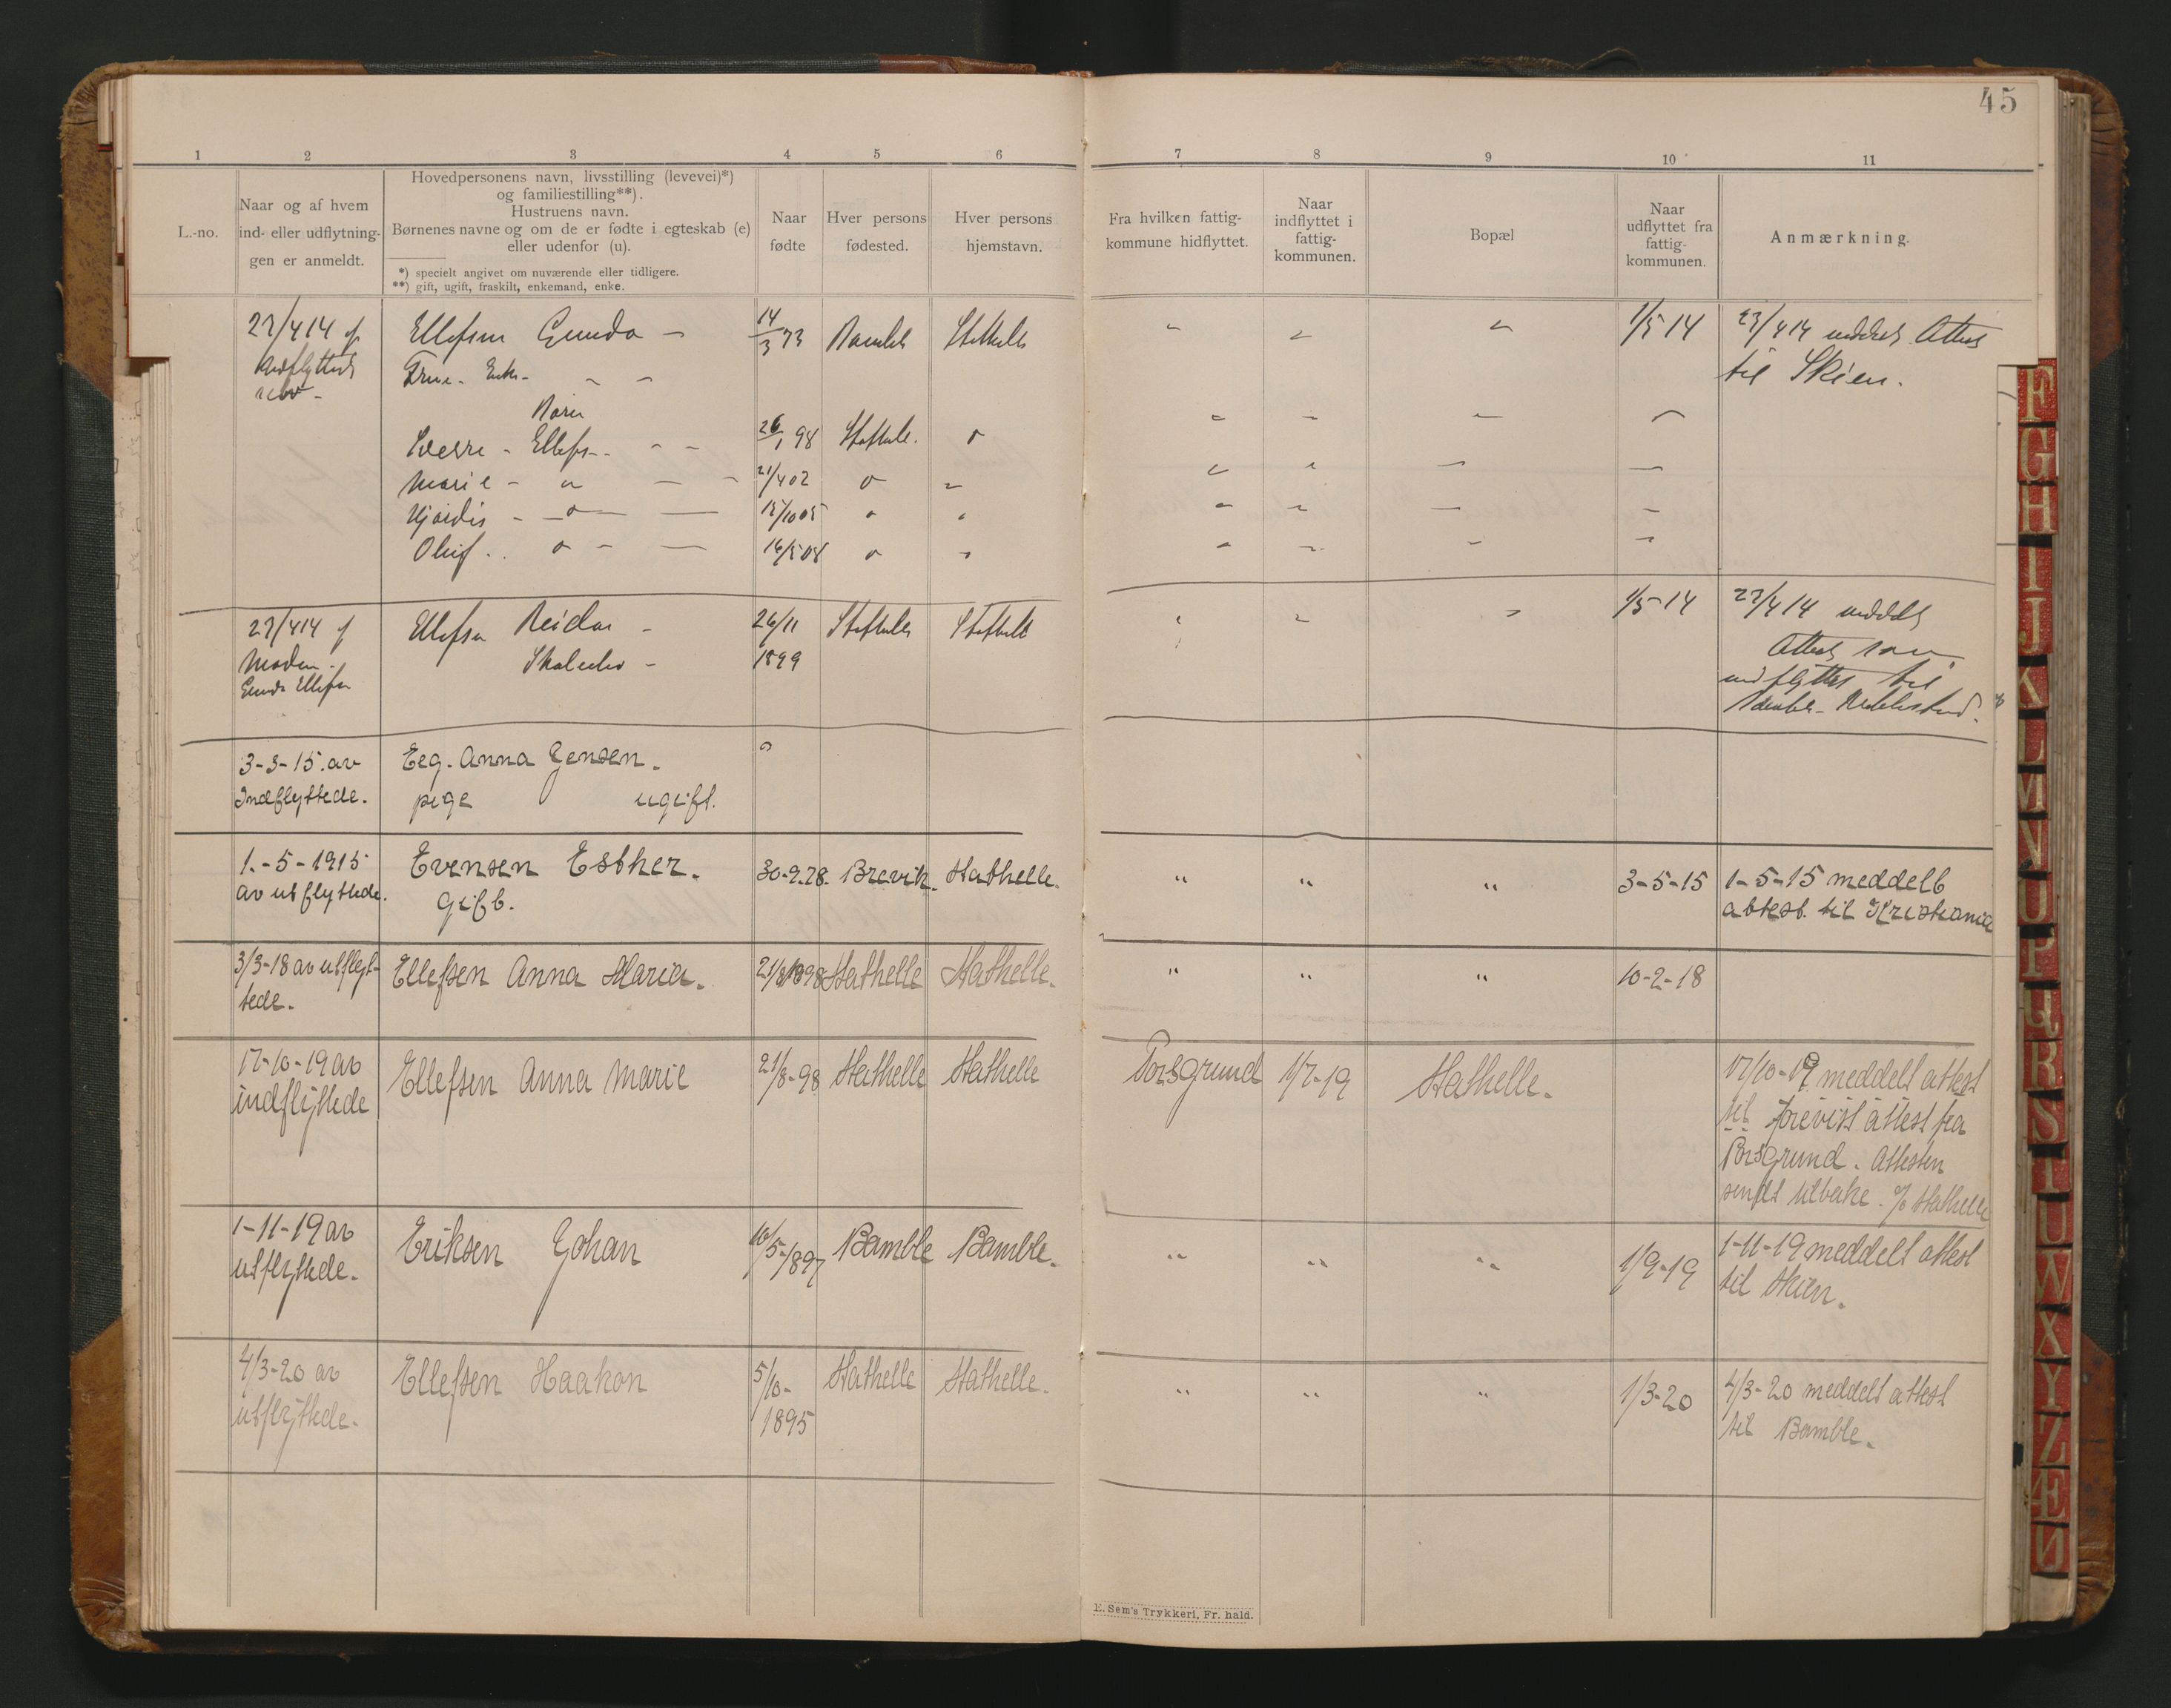 45
1 2 3 4 5 6 7 8 9 10 11
L.-no.
Naar og af hvem
ind- eller udflytnin-
gen er anmeldt.
Hovedpersonens navn, livsstilling (levevei)*)
og familiestilling**).
Hustruens navn.
Børnenes navne og om de er fødte i egteskab (e)
eller udenfor (u).
*) specielt angivet om nuværende eller tidligere.
**) gift, ugift, fraskilt, enkemand, enke.
Naar
fødte
Hver persons
fødested.
Hver persons
hjemstavn.
Fra hvilken fattig-
kommune hidflyttet.
Naar
indflyttet i
fattig-
kommunen.
Bopæl
Naar
udflyttet fra
fattig-
kommunen.
Anmærkning.
Ellefsen Gunda - 14/3 73 Bamble Stathelle " " " 1/5 14 23/4 14 Attest
til Skien.
Børn
Sverre - Ellefs - - 26/1 98 Stathelle.
Marie - " - - 21/4 02
Hjørdis - " -
Oluf
Ellefsen Reidar - 26/11 Stathelle Stathelle 1/5-14 23/4 14 meddelt
1899 Attest som
Moderen
Gunda Ellefsen
3-3-15. av Eeg. Anna Jensen.
Indflyttede. pige ugift.
1.-5-1915 Evensen Esther. 30-9.78. Brevik. Stathelle. " " " 3-5-15 1-5-15 meddelt
av utflyttede. gift. attest. til Kristiania
3/3-18 av utflyt- Ellefsen Anna Maria. 21/8 1898 Stathelle Stathelle. " " " 10-2-18
tede.
17-10-19 av Ellefsen Anna Marie 21/8-98 Stathelle Stathelle Porsgrund 1/7-19 Stathelle. 17/10-19 meddelt attest
indflyttede til forevist attest fra
Porsgrund. Attesten
sendt tilbake. % Stathelle
1-11-19 av Eriksen Johan 16/5-1897 Bamble Bamble. " " " 1/9-19 1-11-19 meddelt attest
utflyttede. til Skien.
4/3-20 av Ellefsen Haakon 5/10- Stathelle Stathelle. " " " 1/3-20 4/3-20 meddelt attest
utflyttede. 1895 til Bamble.
E. Sem's Trykkeri, Fr. hald.
F
G
H
I
J
K
L
M
N
O
P
Q
R
S
T
U
W
X
Y
Z
Æ